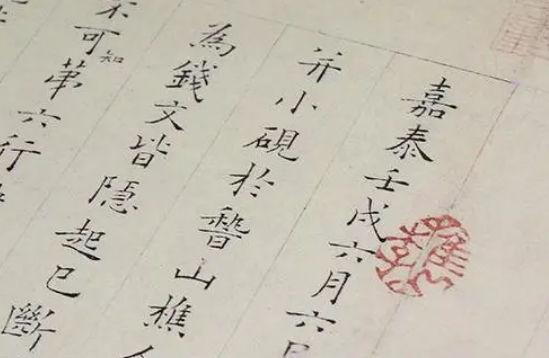 嘉泰壬戌六月六日
并小硯於稽山樵
為錢文皆隱起已斷
不可知第六行